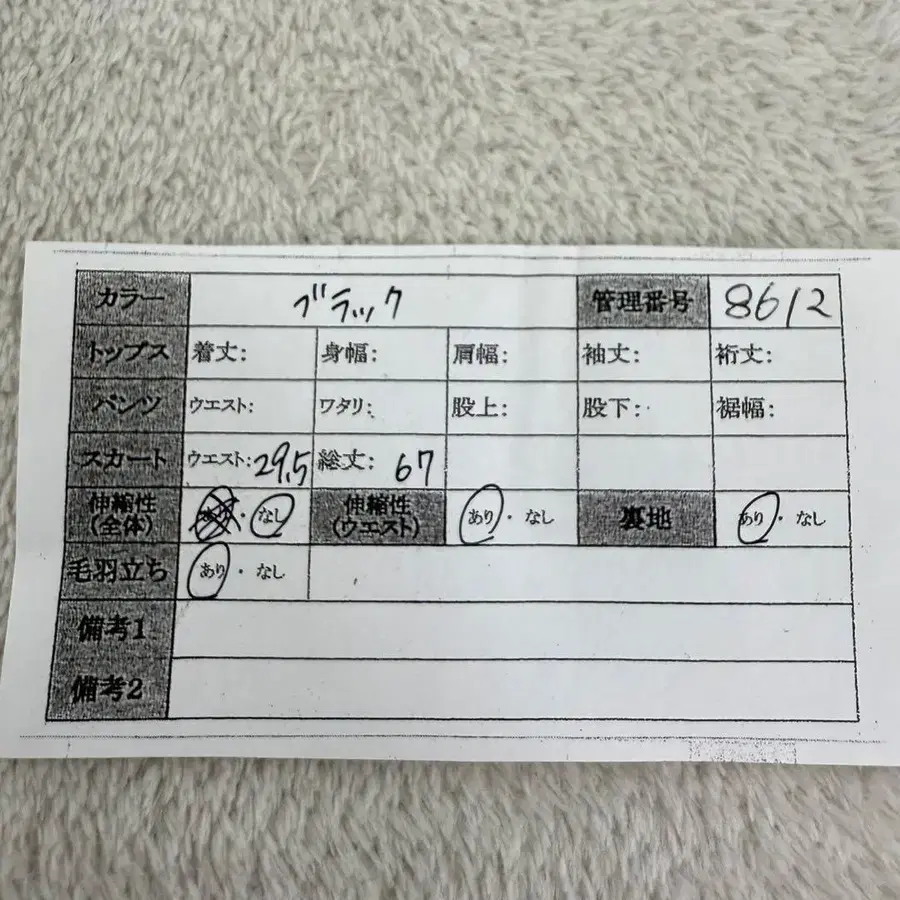 カラー ブラック 管理番号 8612
トップス 着丈: 身幅: 肩幅: 袖丈: 裄丈:
パンツ ウエスト: ワタリ: 股上: 股下: 裾幅:
スカート ウエスト: 29.5 総丈: 67
伸縮性(全体) ・ なし 伸縮性(ウエスト) あり ・ なし 裏地 あり ・ なし
毛羽立ち あり ・ なし
備考1
備考2